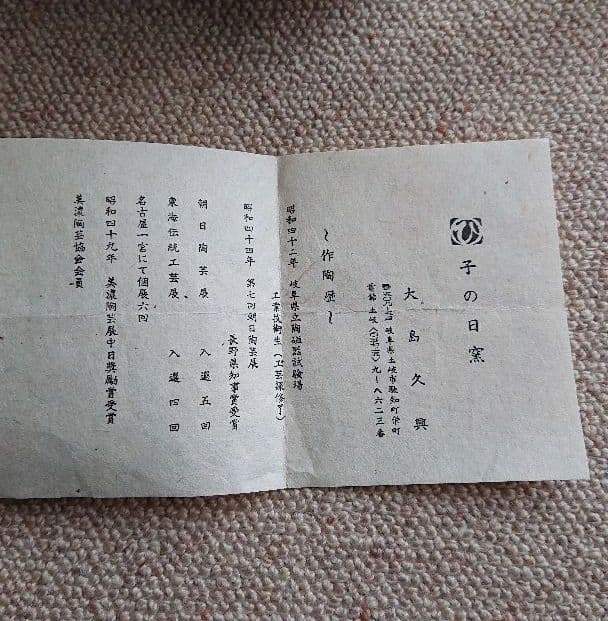 子の日窯
大島久興
岐阜県土岐市駄知町栄町
土岐 九ー八六二三番
〜作陶歴〜
昭和四十二年 岐阜県立陶磁器試験場
工業技術生(工芸課修了)
昭和四十四年 第七回朝日陶芸展
長野県知事賞受賞
朝日陶芸展 入選五回
東海伝統工芸展 入選四回
名古屋一宮にて個展六回
昭和四十九年 美濃陶芸展中日奨励賞受賞
美濃陶芸協会会員